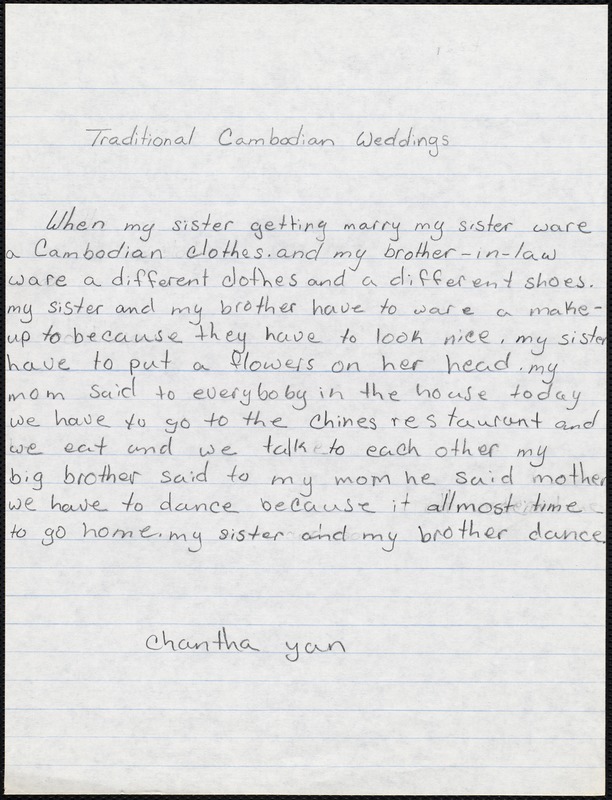 Traditional Cambodian Weddings
When my sister getting marry my sister ware
a Cambodian clothes. and my brother-in-law
ware a different clothes and a different shoes.
my sister and my brother have to ware a make-
up to because they have to look nice. my sister
have to put a flowers on her head. my
mom said to everyboby in the house today
we have to go to the chines restaurant and
we eat and we talk to each other my
big brother said to my mom he said mother
we have to dance because it allmost time
to go home. my sister and my brother dance.
chantha yan